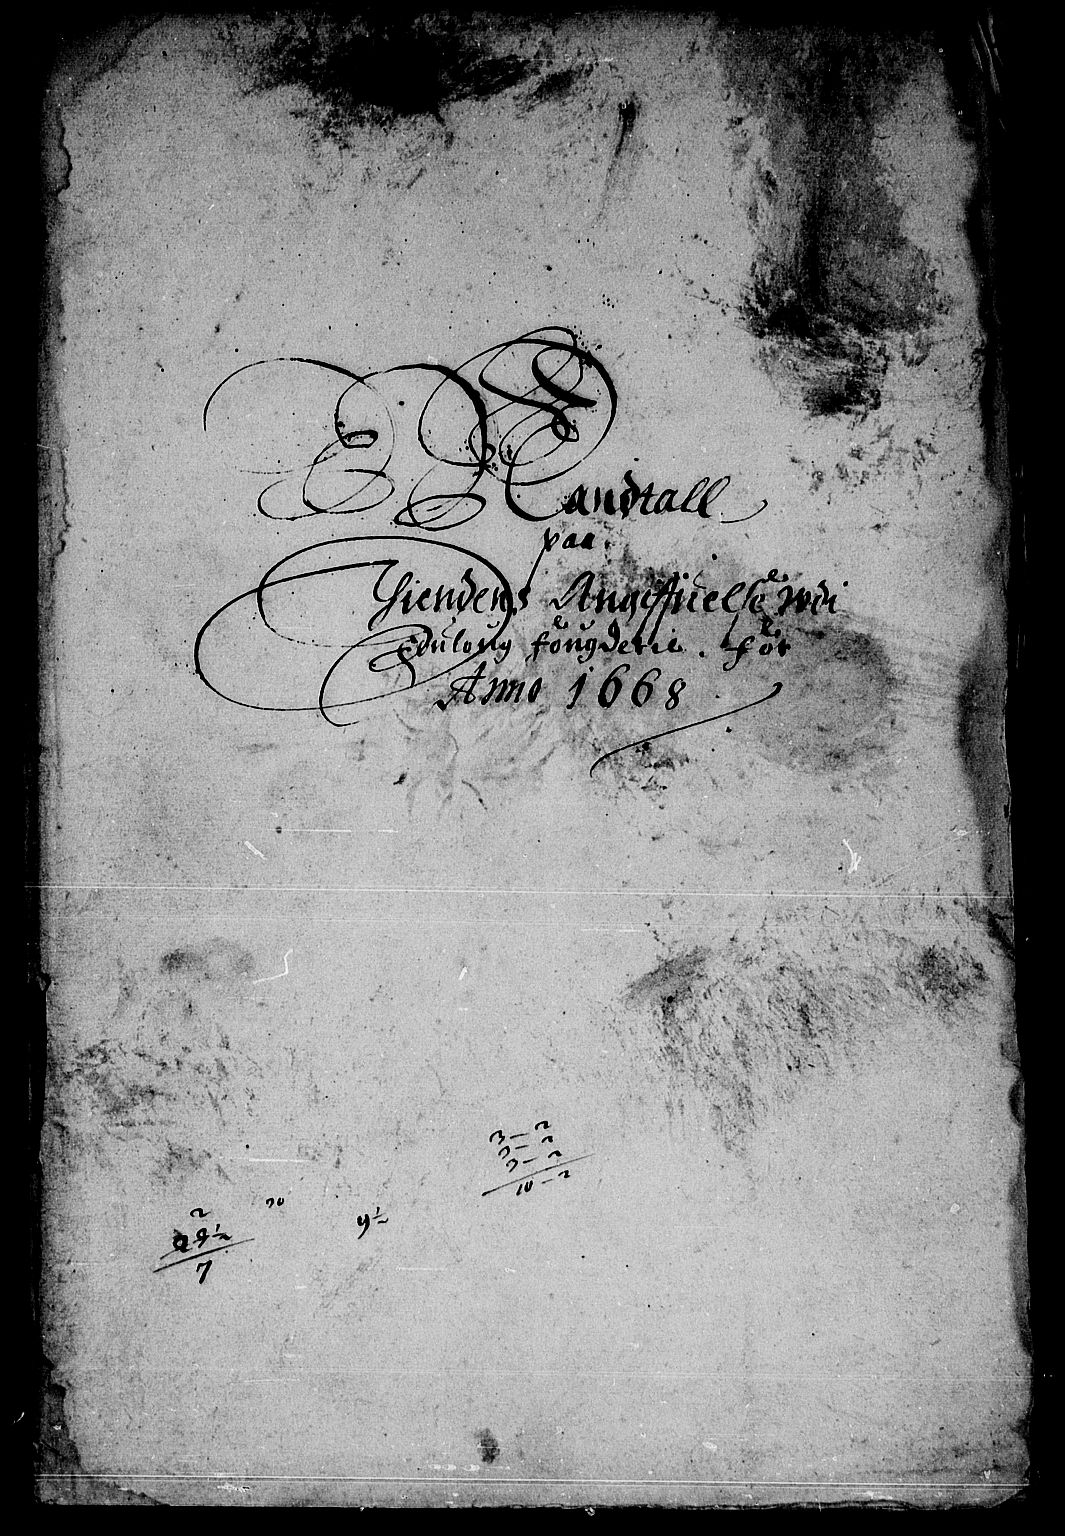 Mandtall
paa
Tiendens Angiffuelse Vdi
fougderie. for
Anno 1668
3 – 2
3 – 2
3 – 2
10 – 2
2
9½
7
9½